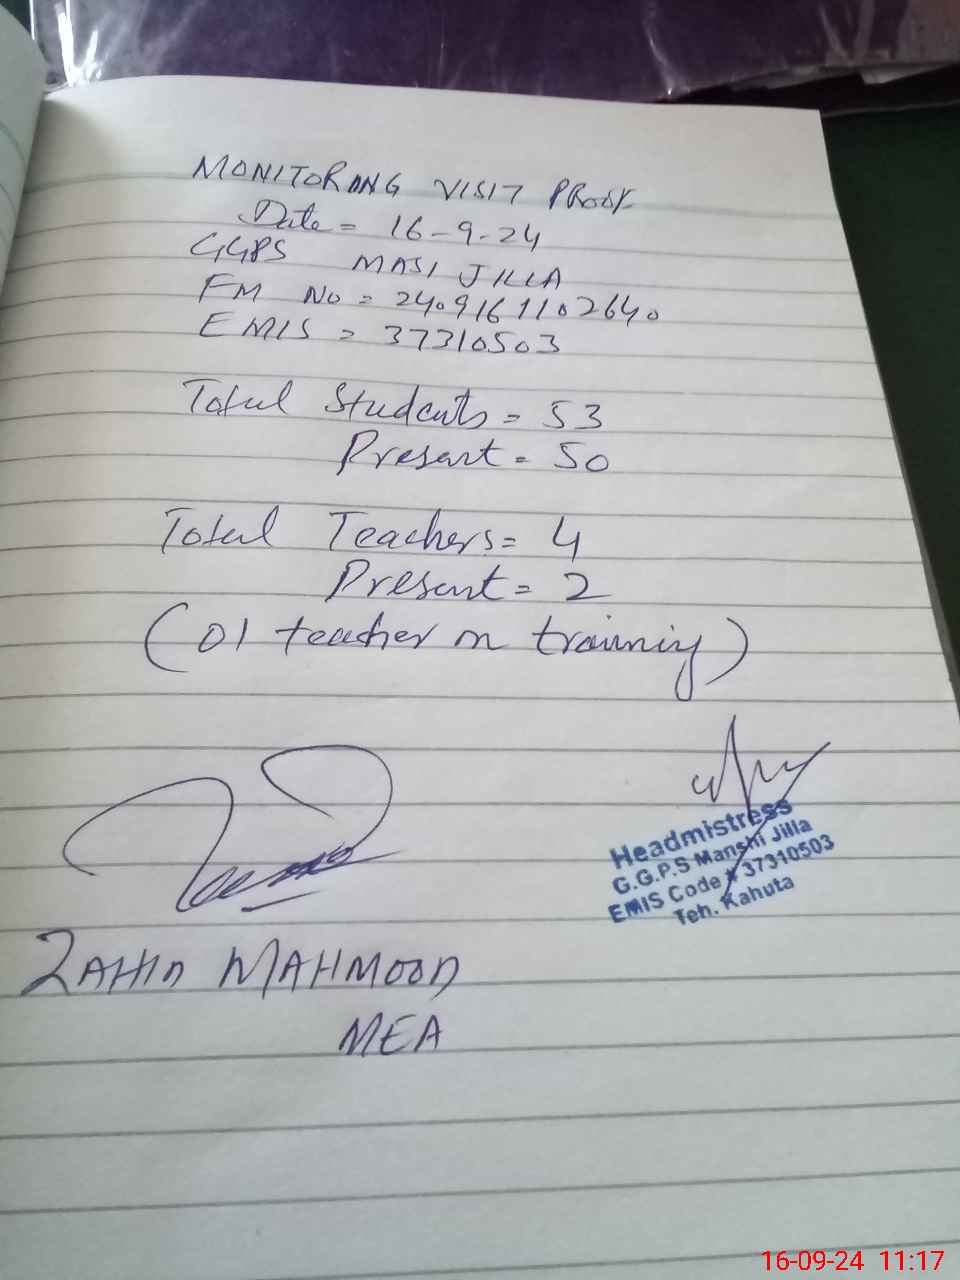 MONITORING VISIT PROOF
Date = 16-9-24
GGPS MASI JILLA
FM No = 2409161102640
EMIS = 37310503
Total Students = 53
Present = 50
Total Teachers = 4
Present = 2
(01 teacher on training)
Headmistress
G.G.P.S Manshi Jilla
EMIS Code # 37310503
Teh. Kahuta
ZAHID MAHMOOD
MEA
16-09-24 11:17